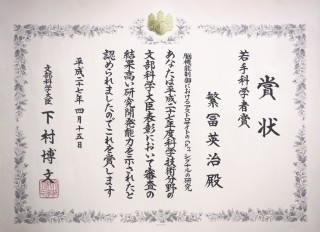 賞状
若手科学者賞
繁冨英治殿
脳機能制御におけるアストロサイトのCa²⁺シグナルの研究
あなたは平成二十七年度科学技術分野の
文部科学大臣表彰において審査の
結果高い研究開発能力を示されたと
認められましたのでこれを賞します
平成二十七年四月十五日
文部科学大臣 下村博文